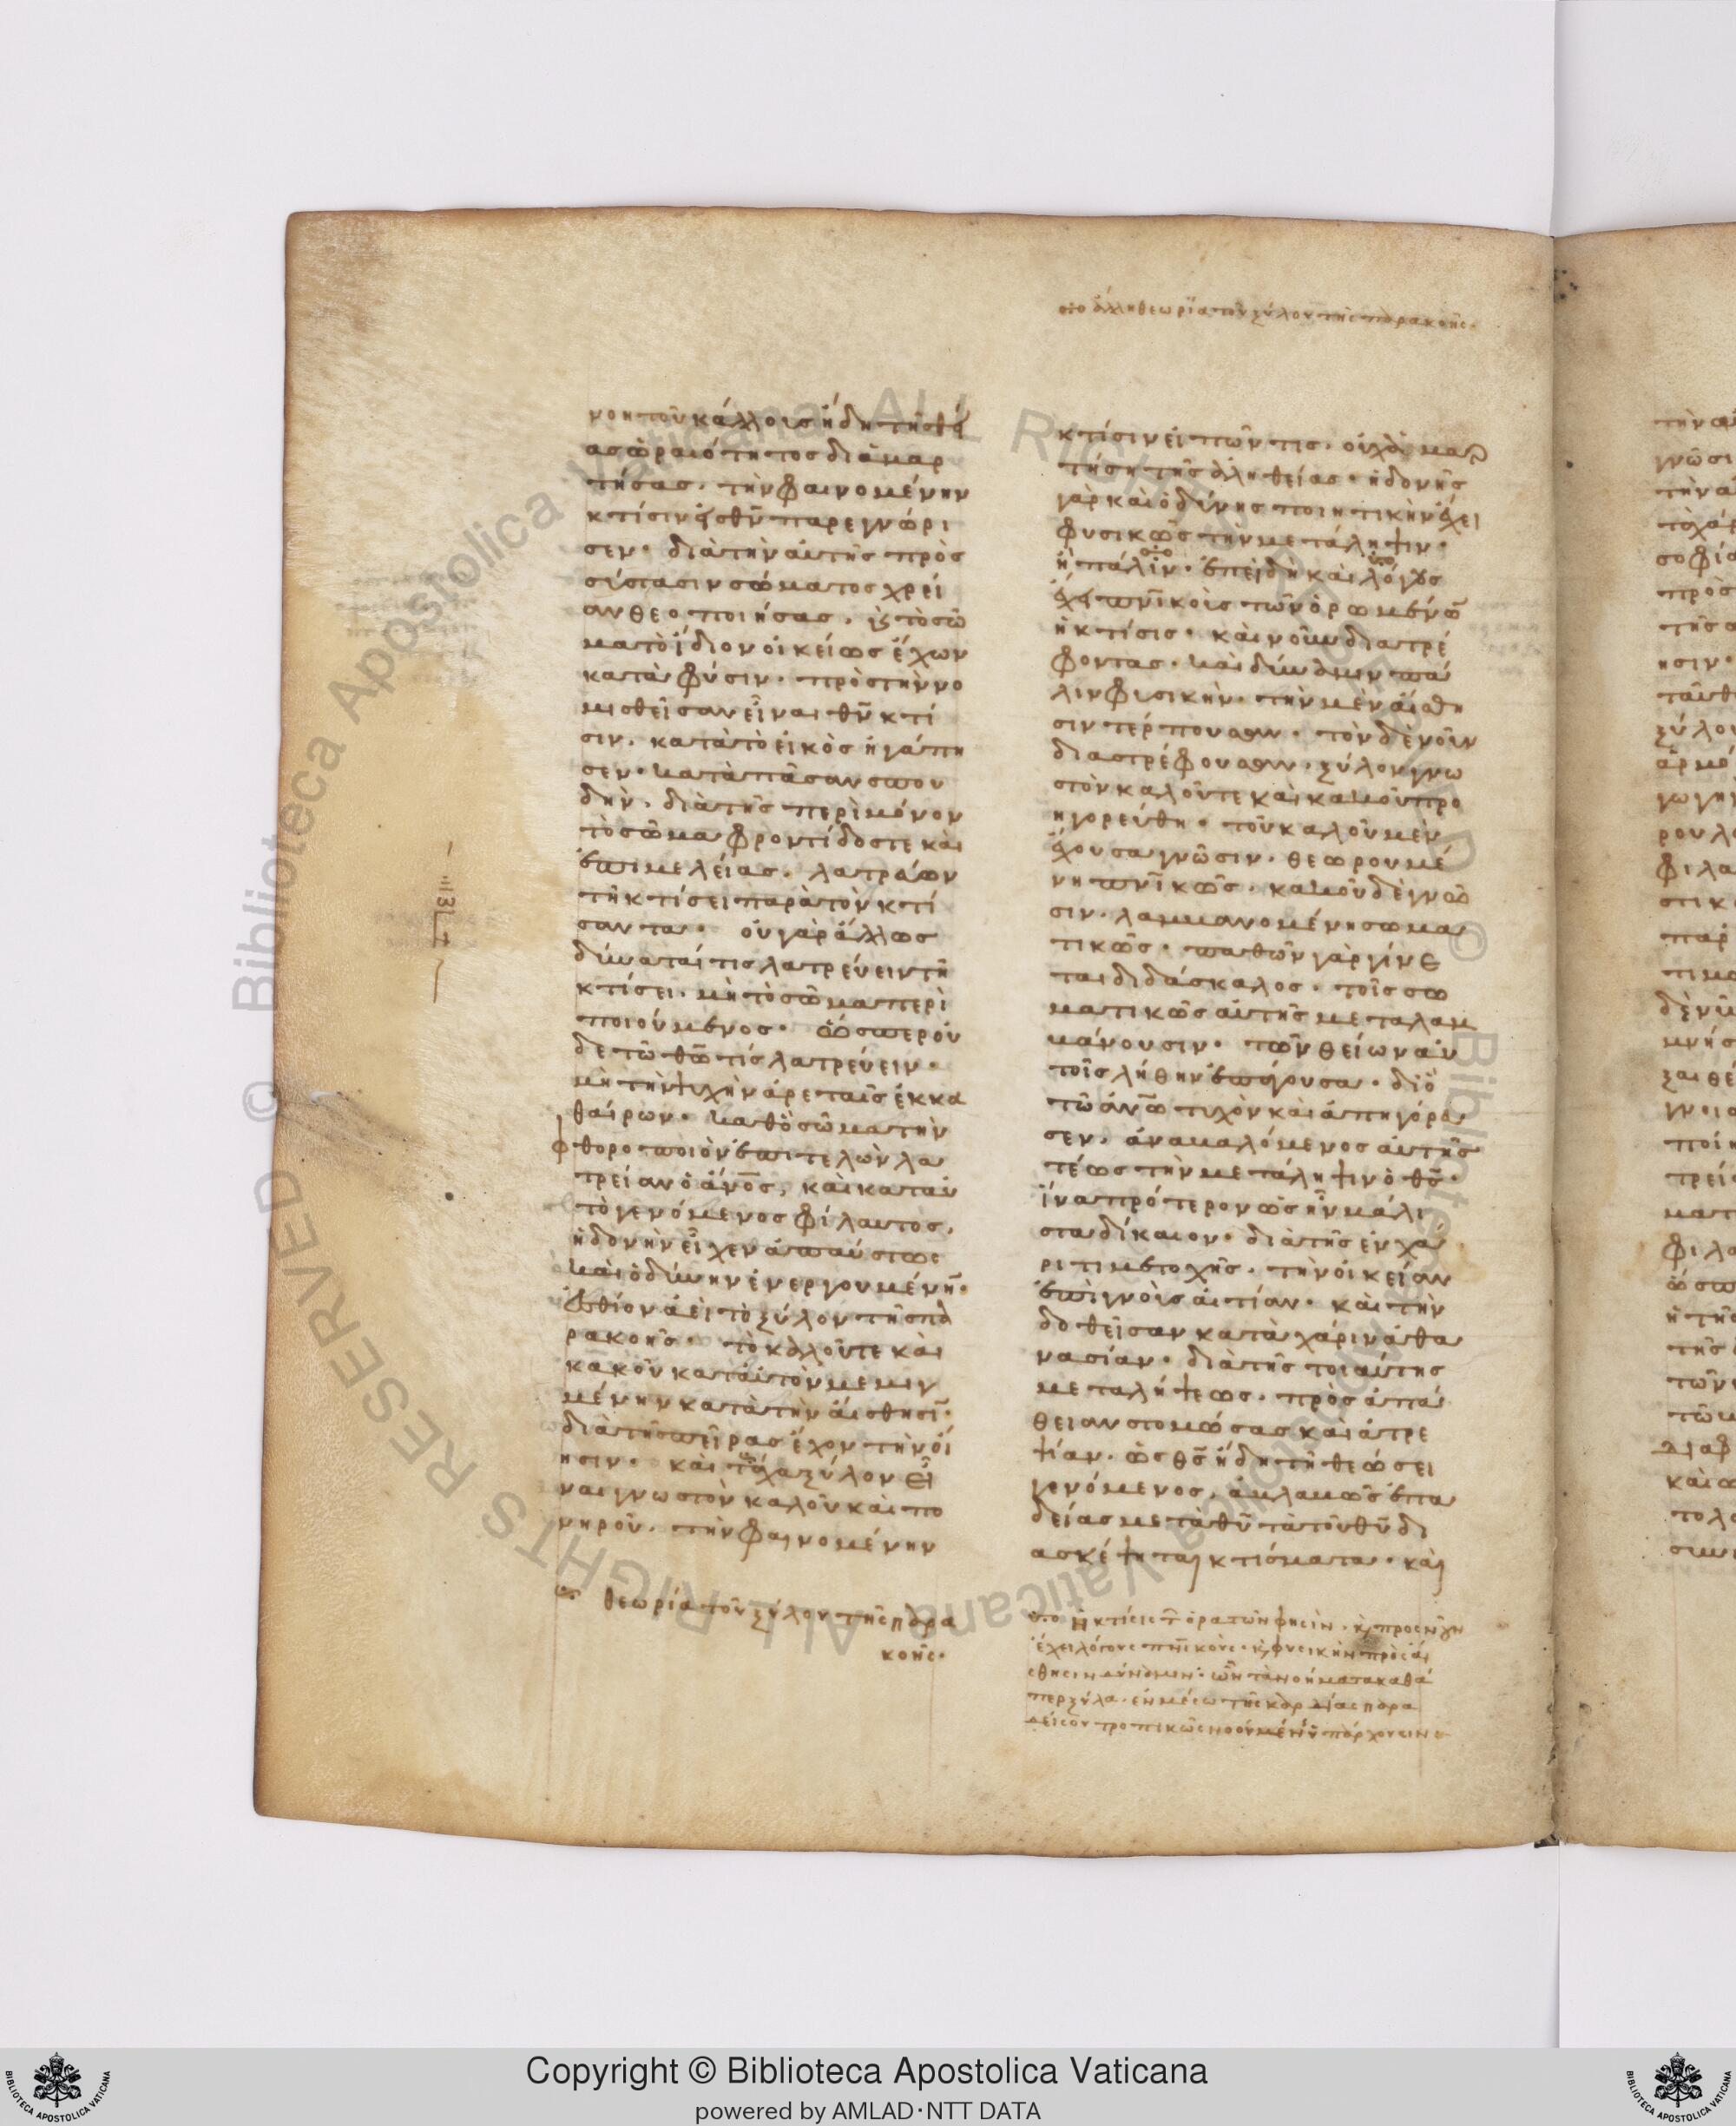 ὁτο ἄλλη θεωρία τοῦ ξύλου τῆς παρακοῆς.
νοητοῦ κάλλους ἤδη τῆς θεί
ας ὡραιότητος διαμαρ
τήσας. τὴν φαινομένην
κτίσιν εἰς θν παρεγνώρι
σεν. διὰ τὴν αὐτῆς πρὸς
σύστασιν σώματος χρεί
αν θεοποιήσας.
ματὸ ἴδιον οἰκείως ἔχων
κατὰ φύσιν. πρὸς τὴν νο
μισθεῖσαν εἶναι θν κτί
σιν. κατὰ τὸ εἰκὸς ἠγάπη
σεν. κατὰ πᾶσαν σπου
δὴν. διὰ τῆς περὶ μόνον
τὸ σῶμα φροντίδος τε καὶ
ἐπιμελείας. λατρεύων
τῆ κτίσει παρὰ τὸν κτί
σαντα. οὐ γὰρ ἄλλως
δύναταί τις λατρεύειν τῆ
κτίσει. μὴ τὸ σῶμα περι
ποιούμενος. ὥσπερ οὐ
δὲ τῶ θῶ τίς λατρεύειν.
μὴ τὴν ψυχὴν ἀρεταῖς ἐκκα
θαίρων. καθὸ σῶμα τὴν
φθοροποιὸν ἐπιτελῶν λα
τρείαν ὁ ἄνος, καὶ κατ' αὐ
τὸ γενόμενος φίλαυτος,
ἡδονὴν εἶχεν ἀπαύστως
καὶ ὀδύνην ἐνεργουμένην.
ἐσθίον ἀεὶ τὸ ξύλον τῆς πα
ρακοῆς. τὸ καλοῦ τε καὶ
κακοῦ κατ' αὐτὸν μεμιγ
μένην κατὰ τὴν αἴσθησιν.
διὰ τῆς πείρας ἔχον τὴν
καὶ τάχα ξύλον εἶ
ναι γνωστὸν καλοῦ καὶ πο
νηροῦ. τὴν φαινομένην
θεωρία τοῦ ξύλου τῆς παρα
κοῆς.
κτίσιν εἰπῶν τις. οὐχ ἁμαρ
τήση τῆς ἀληθείας. ἡδονῆς
γὰρ καὶ ὀδύνης ποιητικὴν ἔχει
φυσικῶς τὴν μετάληψιν.
ἢ πάλιν. ἐπειδὴ καὶ λόγους
ἔχει πνικοὺς τῶν ὁρωμένων
ἡ κτίσις. καὶ νοῦν διατρέ
φοντας. καὶ δύναμιν πά
λιν φυσικὴν. τὴν μὲν αἴσθη
σιν τέρπουσαν. τὸν δὲ νοῦν
διαστρέφουσαν. ξύλον γνω
στὸν καλοῦ τε καὶ κακοῦ προ
ηγορεύθη. τοῦ καλοῦ μὲν
ἔχουσα γνῶσιν. θεωρουμέ
νη πνικῶς. κακοῦ δὲ γνῶ
σιν. λαμβανομένη σωμα
τικῶς. παθῶν γὰρ γίνε
ται διδάσκαλος. τοῖς σω
ματικῶς αὐτῆς μεταλαμ
βάνουσιν. τῶν θείων αὐ
τοῖς λήθην ἐπάγουσα. διὸ
τῶ ἀνω τυχὸν καὶ ἀπηγόρευ
σεν. ἀναβαλόμενος αὐτῆς
τέως τὴν μετάληψιν ὁ θς.
ἵνα πρότερον ὡς ἦν μάλι
στα δίκαιον. διὰ τῆς ἐν χά
ριτι μετοχῆς. τὴν οἰκείαν
ἐπιγνοὺς αἰτίαν. καὶ τὴν
δοθεῖσαν κατὰ χάριν ἀθα
νασίαν. διὰ τῆς τοιαύτης
μεταλήψεως. πρὸς ἀπά
θειαν στομώσας καὶ ἀτρε
ψίαν. ὡς θς ἤδη τῆ θεώσει
γενόμενος, ἀβλαβῶς ἐπ' ἀ
δείας μετὰ θυ τὰ τοῦ θυ δι
ασκέψηται κτίσματα. καὶ
ἡ κτίσις τ ὁρατῶν φησὶν.
ἔχει λόγους πνικοὺς. κ φυσικὴν πρὸς αἴ
σθησιν δύναμιν. ὧν τὰ νοήματα καθά
περ ξύλα. ἐν μέσω τῆς καρδίας παρα
δείσου τροπικῶς νοουμένης ὑπάρχουσιν